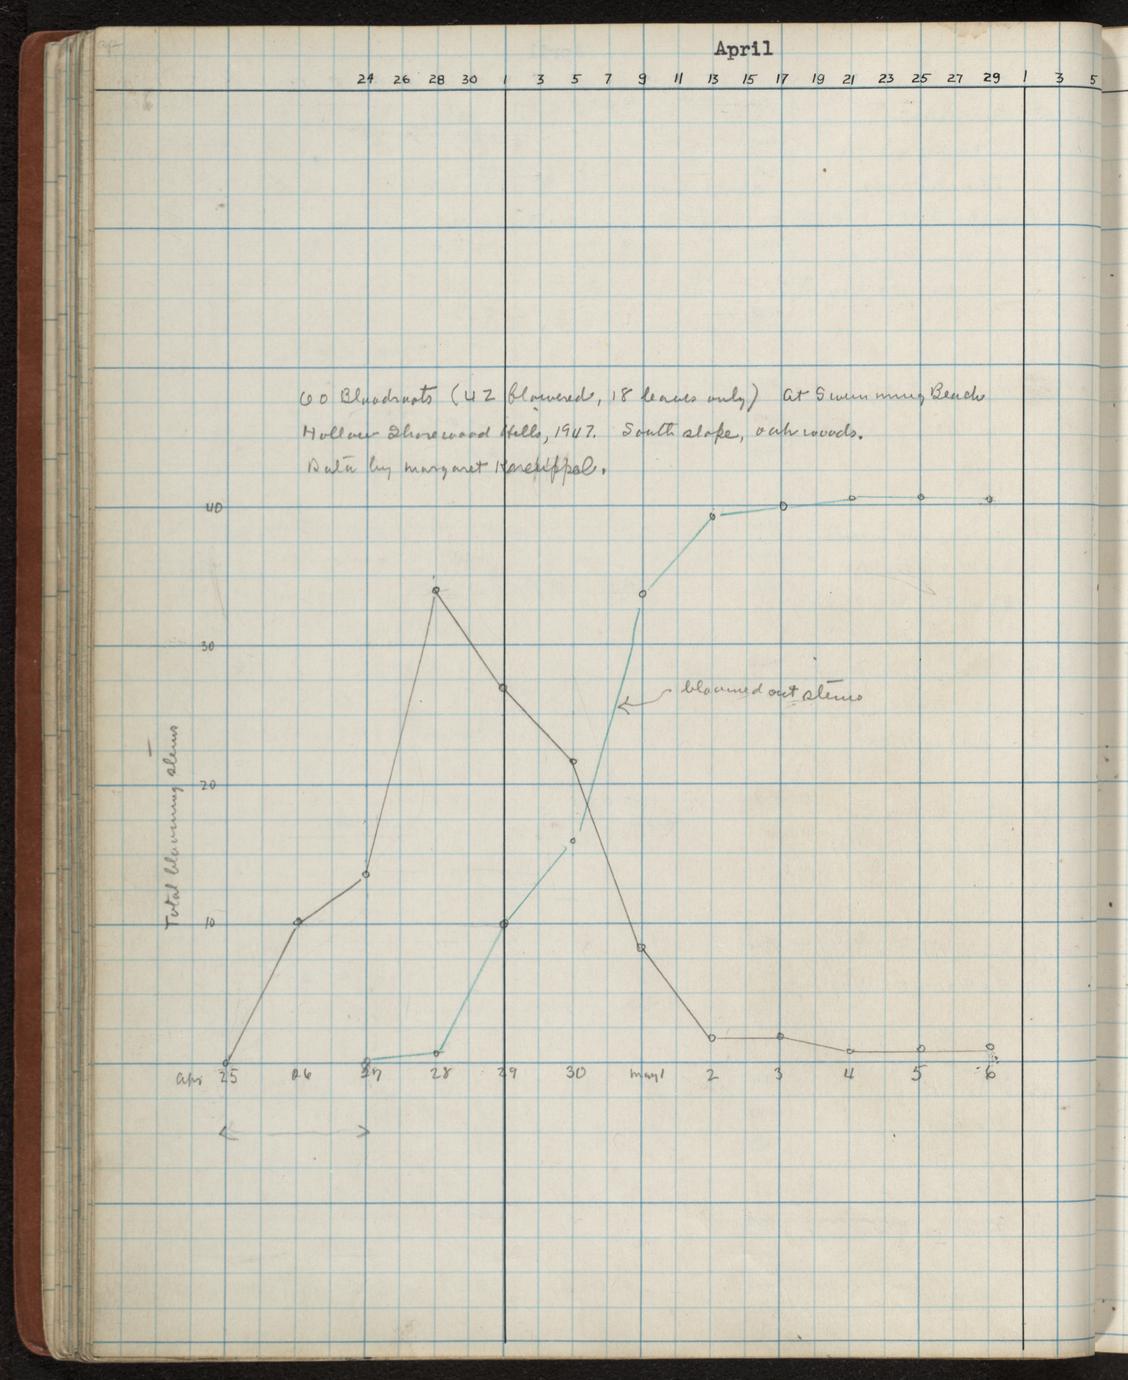 April
24 26 28 30 1 3 5 7 9 11 13 15 17 19 21 23 25 27 29 1 3 5
60 Bloodroots (42 flowered, 18 leaves only) at Swimming Beach
Hollow Shorewood Hills, 1947. South slope, oak woods.
Data by Margaret
40
30
bloomed out stems
20
Total blooming stems
10
Apr 25 26 27 28 29 30 May 1 2 3 4 5 6